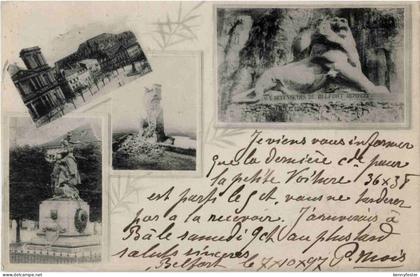 AUX DEFENSEURS DE BELFORT
Je viens vous informer
que la dernière cde pour
la petite Voiture 36x38
est parti le 5 ct, vous ne tarderez
pas à la recevoir. J'arriverais à
Bâle samedi 9 ct au plus tard
saluts sincères
Belfort le 7/10 97 P. Mois